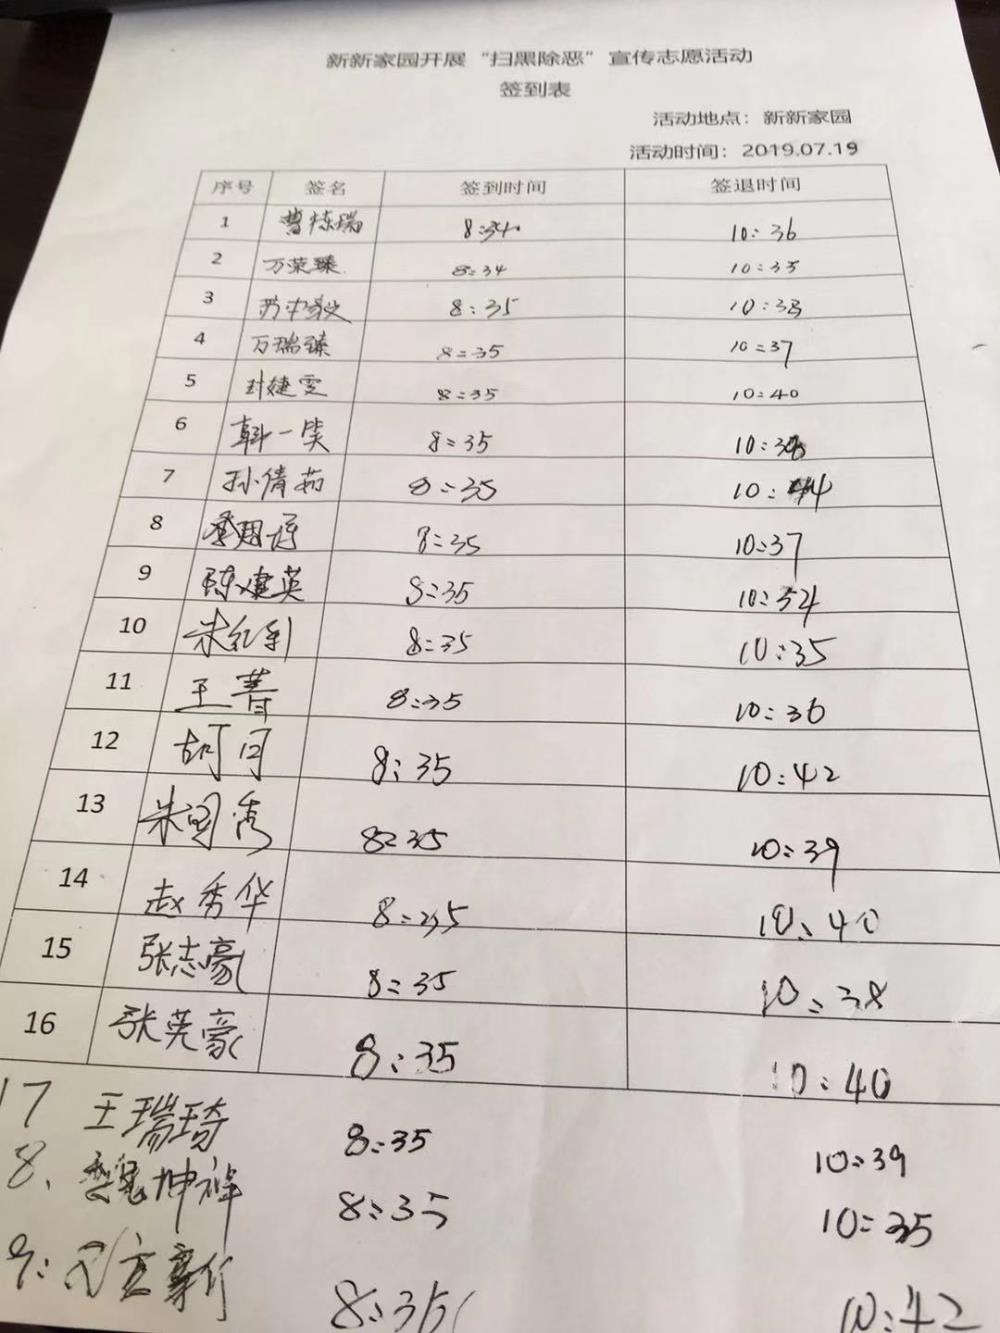 新新家园开展“扫黑除恶”宣传志愿活动
签到表
活动地点：新新家园
活动时间：2019.07.19
序号 签名 签到时间 签退时间
1 曹栋瑞 8:34 10:36
2 万荣臻 8:34 10:35
3 8:35 10:38
4 万瑞臻 8:35 10:37
5 封婕雯 8:35 10:40
6 韩一笑 8:35 10:38
7 孙倩茹 8:35 10:44
8 8:35 10:37
9 陈建英 8:35 10:34
10 朱红 8:35 10:35
11 王菁 8:35 10:36
12 胡可 8:35 10:42
13 朱国秀 8:35 10:39
14 赵秀华 8:35 10:40
15 张志豪 8:35 10:38
16 张英豪 8:35 10:40
17 王瑞琦 8:35 10:39
8、 魏坤祥 8:35 10:35
9: 8:35 10:42